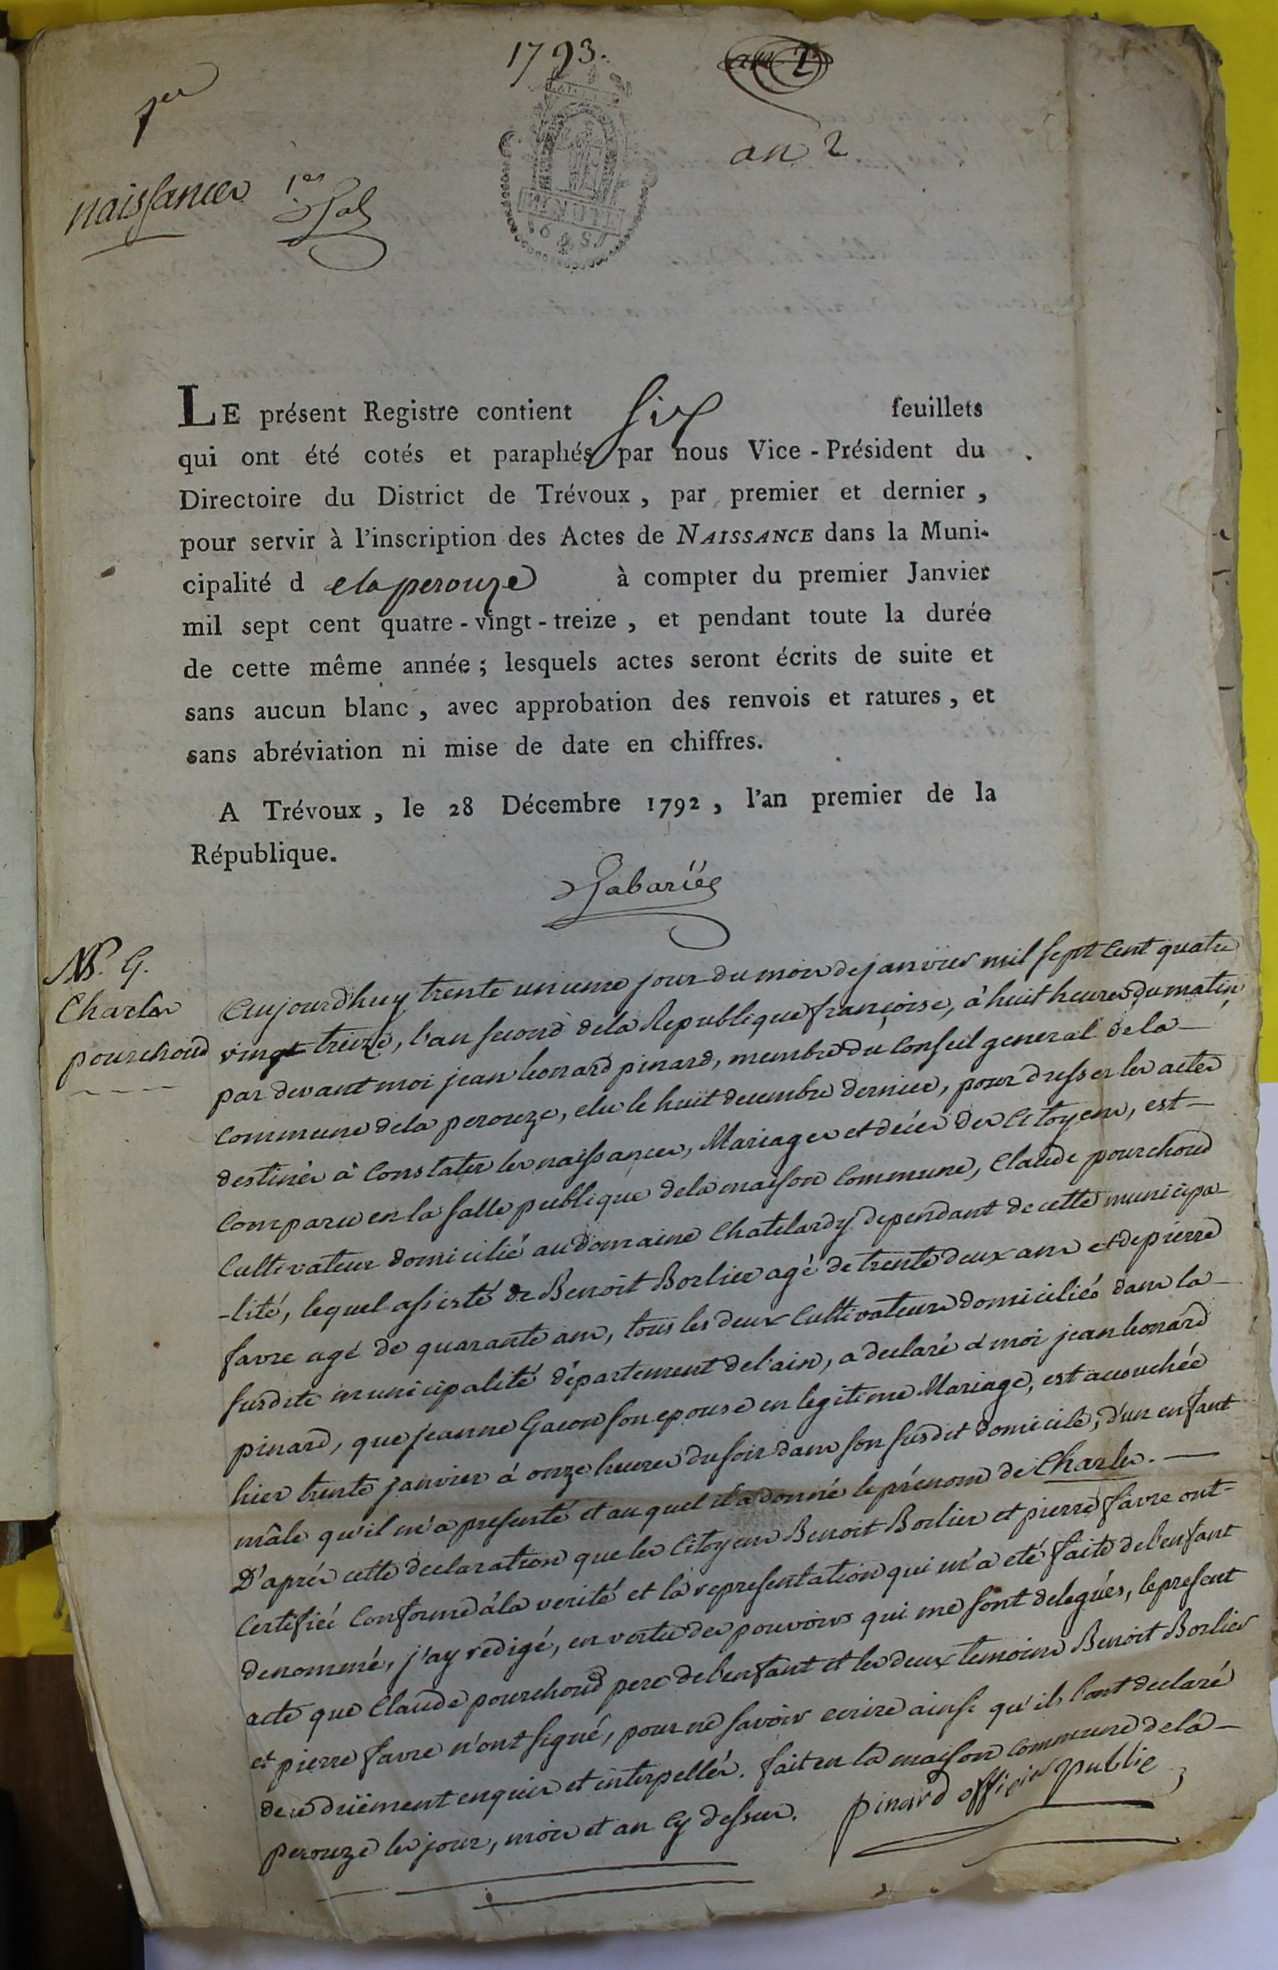 1793.
an 2
1er
naissances 1er
LE présent Registre contient Six feuillets
qui ont été cotés et paraphés par nous Vice-Président du
Directoire du District de Trévoux, par premier et dernier,
pour servir à l'inscription des Actes de NAISSANCE dans la Muni-
cipalité d ela perouze à compter du premier Janvier
mil sept cent quatre-vingt-treize, et pendant toute la durée
de cette même année; lesquels actes seront écrits de suite et
sans aucun blanc, avec approbation des renvois et ratures, et
sans abréviation ni mise de date en chiffres.
A Trévoux, le 28 Décembre 1792, l'an premier de la
République.
N. G.
Charles
pourchoud
aujourdhuy trente unieme jour du mois de janvier mil sept cent quatre
vingt treize, l'an second de la Republique françoise, à huit heures du matin
par devant moi jean leonard pinard, membre du Conseil general de la
commune de la perouze, elu le huit decembre dernier, pour dresser les actes
destinés à Constater les naissances, Mariages et décés des Citoyens, est
Comparu en la salle publique de la maison Commune, Claude pourchoud
Cultivateur domicilié au domaine Chatelardy dependant de cette municipa
-lité, lequel assisté de Benoit Borlier agé de trente deux ans et de pierre
favre agé de quarante ans, tous les deux Cultivateurs domiciliés dans la
susdite municipalité département de l'ain, a declaré à moi jean leonard
pinard, que jeanne Gacon son epouse en legitime Mariage, est acouchée
hier trente janvier à onze heures du soir dans son susdit domicile, d'un enfant
mâle qu'il m'a presenté et au quel il a donné le prénom de Charles.
D'aprés cette declaration que les Citoyens Benoit Borlier et pierre favre ont
Certifié Conforme à la verité et la representation qui m'a eté faite de l'enfant
denommé, j'ay redigé, en vertu des pouvoirs qui me sont delegués, le present
acte que Claude pourchoud pere de l'enfant et les deux temoins Benoit Borlier
et pierre favre n'ont signé, pour ne savoir ecrire ainsi qu'ils l'ont declaré
de ce duëment enquis et interpellés. fait en la maison commune de la
perouze les jour, mois et an cy dessus. pinard officier public